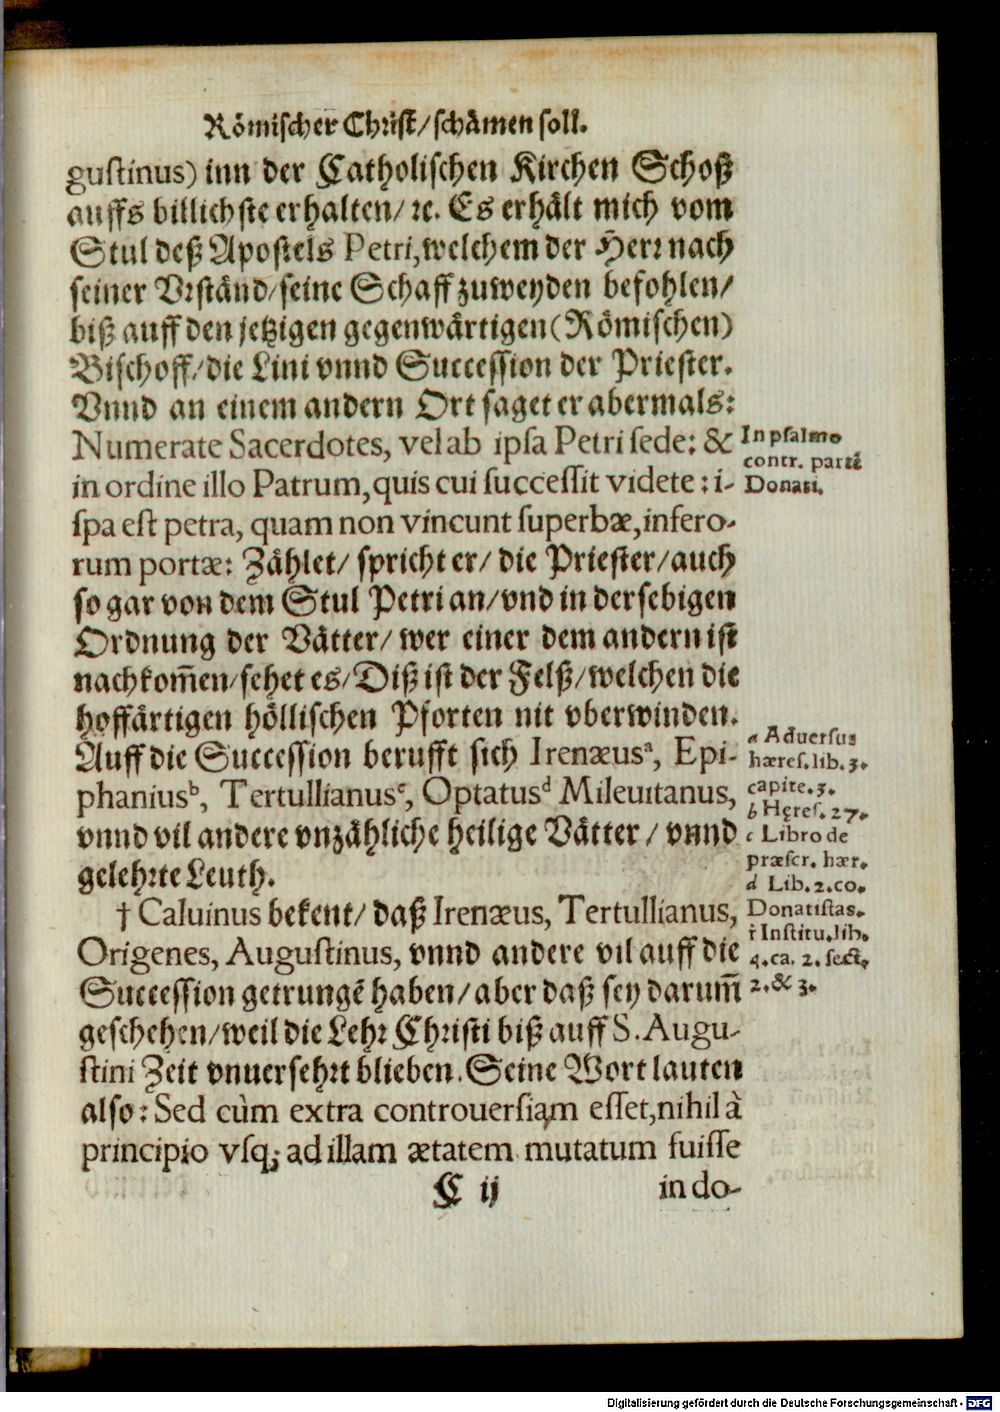 Römischer Christ/schämen soll.
gustinus) inn der Catholischen Kirchen Schoß
auffs billichste erhalten/ ꝛc. Es erhält mich vom
Stul deß Apostels Petri, welchem der Herr nach
seiner Vrständ/seine Schaff zuweyden befohlen/
biß auff den jetzigen gegenwärtigen (Römischen)
Bischoff/die Lini vnnd Succession der Priester.
Vnnd an einem andern Ort saget er abermals:
Numerate Sacerdotes, vel ab ipsa Petri sede: &
in ordine illo Patrum, quis cui successit videte: i-
spa est petra, quam non vincunt superbæ, infero-
rum portæ: Zählet/ spricht er/ die Priester/auch
so gar von dem Stul Petri an/vnd in dersebigen
Ordnung der Vätter/ wer einer dem andern ist
nachkom̄en/sehet es/Diß ist der Felß/welchen die
hoffärtigen höllischen Pforten nit vberwinden.
Auff die Succession berufft sich Irenæusᵃ, Epi-
phaniusᵇ, Tertullianusᶜ, Optatusᵈ Mileuitanus,
vnnd vil andere vnzähliche heilige Vätter / vnnd
gelehrte Leuth.
† Caluinus bekent/ daß Irenæus, Tertullianus,
Origenes, Augustinus, vnnd andere vil auff die
Succession getrungē haben/aber daß sey darum̄
geschehen/weil die Lehr Christi biß auff S. Augu-
stini Zeit vnuersehrt blieben. Seine Wort lauten
also: Sed cùm extra controuersiam esset, nihil à
principio vsq; ad illam ætatem mutatum fuisse
C ij
in do-
In psalmo
contr. partē
Donati.
a Aduersus
hæres. lib. 3.
capite. 3.
b Hęres. 27.
c Libro de
præscr. hær.
d Lib. 2. co.
Donatistas.
† Institu. lib.
4. ca. 2. sect.
2. & 3.
Digitalisierung gefördert durch die Deutsche Forschungsgemeinschaft - DFG